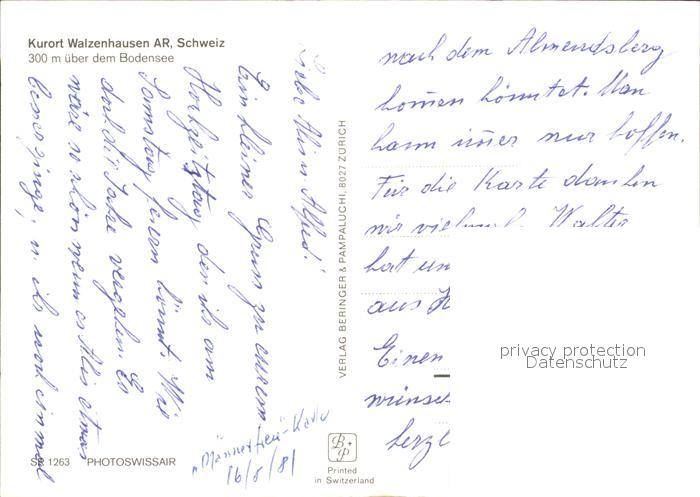 Kurort Walzenhausen AR, Schweiz
300 m über dem Bodensee
Liebe Alis u Alfred!
Ein kleiner Gruss zu eurem
Hochzeitstag den ihr am
Samstag feiern könnt. Wie
doch die Jahre vergehen. Es
wäre so schön wenn es Alis etwas
besser ginge, u. ihr noch einmal
nach dem Almendsberg
kommen könntet. Man
kann immer nur hoffen.
Für die Karte danken
wir vielmal. Walter
hat un
aus
Einen
wünsc
herzl
"Männertreu"-Karte
16/8/81
VERLAG BERINGER & PAMPALUCHI, 8027 ZÜRICH
B+P
Printed
in Switzerland
SR 1263 PHOTOSWISSAIR
privacy protection
Datenschutz